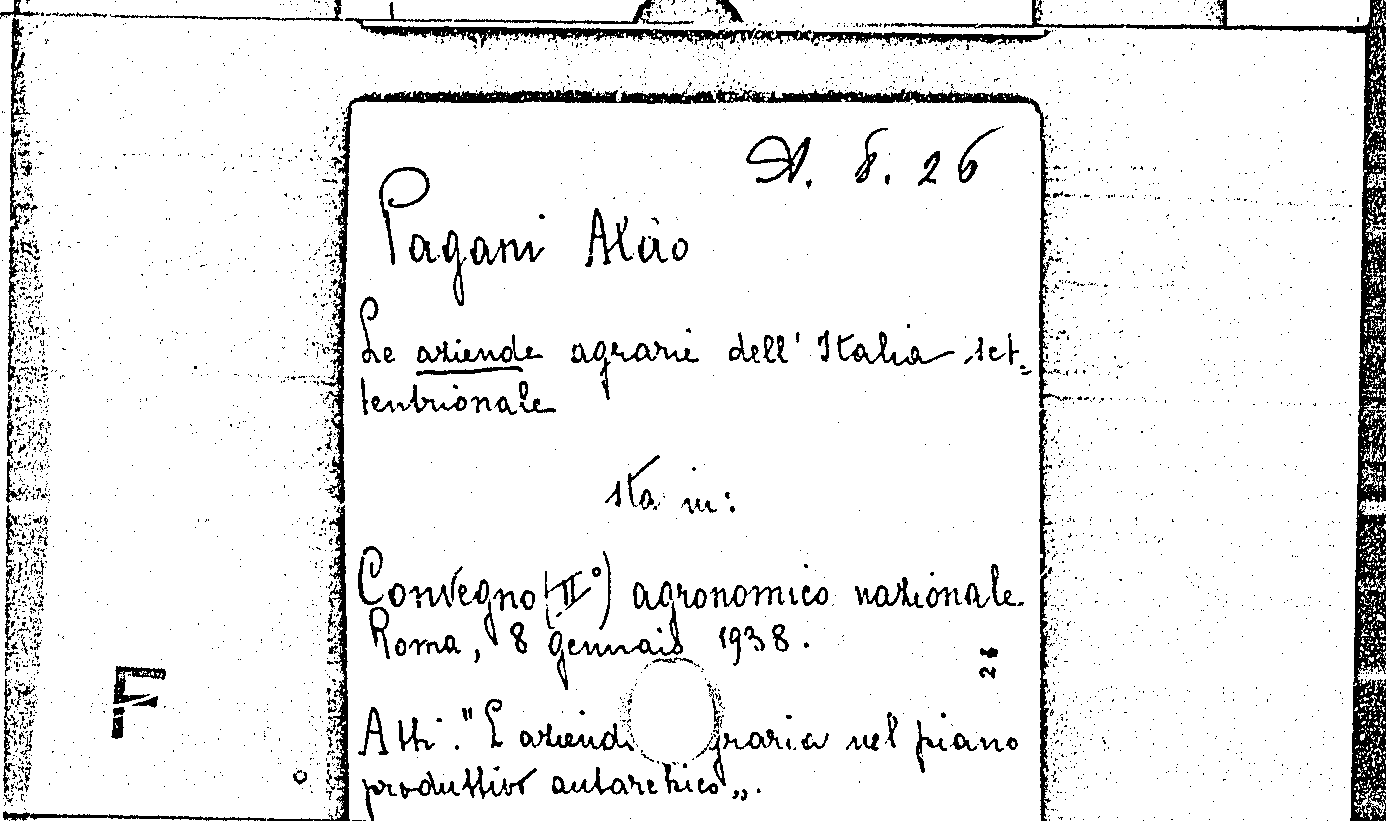 A. 8. 26
Pagani Aldo
Le aziende agrarie dell' Italia set=
tentrionale
sta in:
Convegno (II°) agronomico nazionale
Roma, 8 gennaio 1938.
26
Atti. "L'aziend graria nel piano
produttivo autarchico„.
F